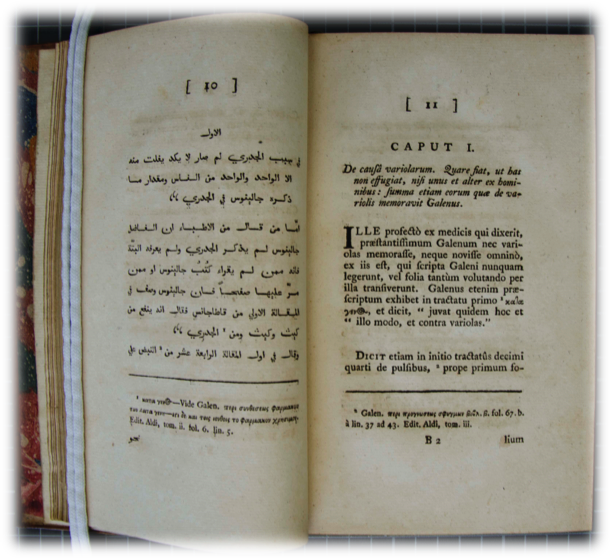 [ 10 ]
الاول
في سبب الجدري لم صار لا يكد يفلت منه
الا الواحد والواحد من الناس ومقدار ما
ذكره جالينوس في الجدري
امّا من قال من الاطباء ان الفاضل
جالينوس لم يذكر الجدري ولم يعرفه البتّة
فانه ممن لم يقراء كُتُبَ جالينوس او ممن
مرّ عليها صفحا فان جالينوس وصف في
المقالة الاولي من قاطاجانس فقال انه ينفع من
كيت وكيت ومن الجدري
وقال في اول المقالة الرابعة عشر من النبض علي
—Vide Galen. περι συνθεσεως φαρμακων
Edit. Aldi, tom. ii. fol. 6. lin. 5.
نحو
[ 11 ]
CAPUT I.
De causâ variolarum. Quare fiat, ut has
non effugiat, nisi unus et alter ex homi-
nibus: summa etiam eorum quæ de va-
riolis memoravit Galenus.
ILLE profectò ex medicis qui dixerit,
præstantissimum Galenum nec vari-
olas memorasse, neque novisse omninò,
ex iis est, qui scripta Galeni nunquam
legerunt, vel folia tantùm volutando per
illa transiverunt. Galenus etenim præ-
scriptum exhibet in tractatu primo ʳ κατα
γενη, et dicit, “ juvat quidem hoc et
“ illo modo, et contra variolas.”
DICIT etiam in initio tractatûs decimi
quarti de pulsibus, ˢ prope primum fo-
ˢ Galen. περι προγνωσεως σφυγμων fol. 67. b.
à lin. 37 ad 43. Edit. Aldi, tom. iii.
B 2 lium